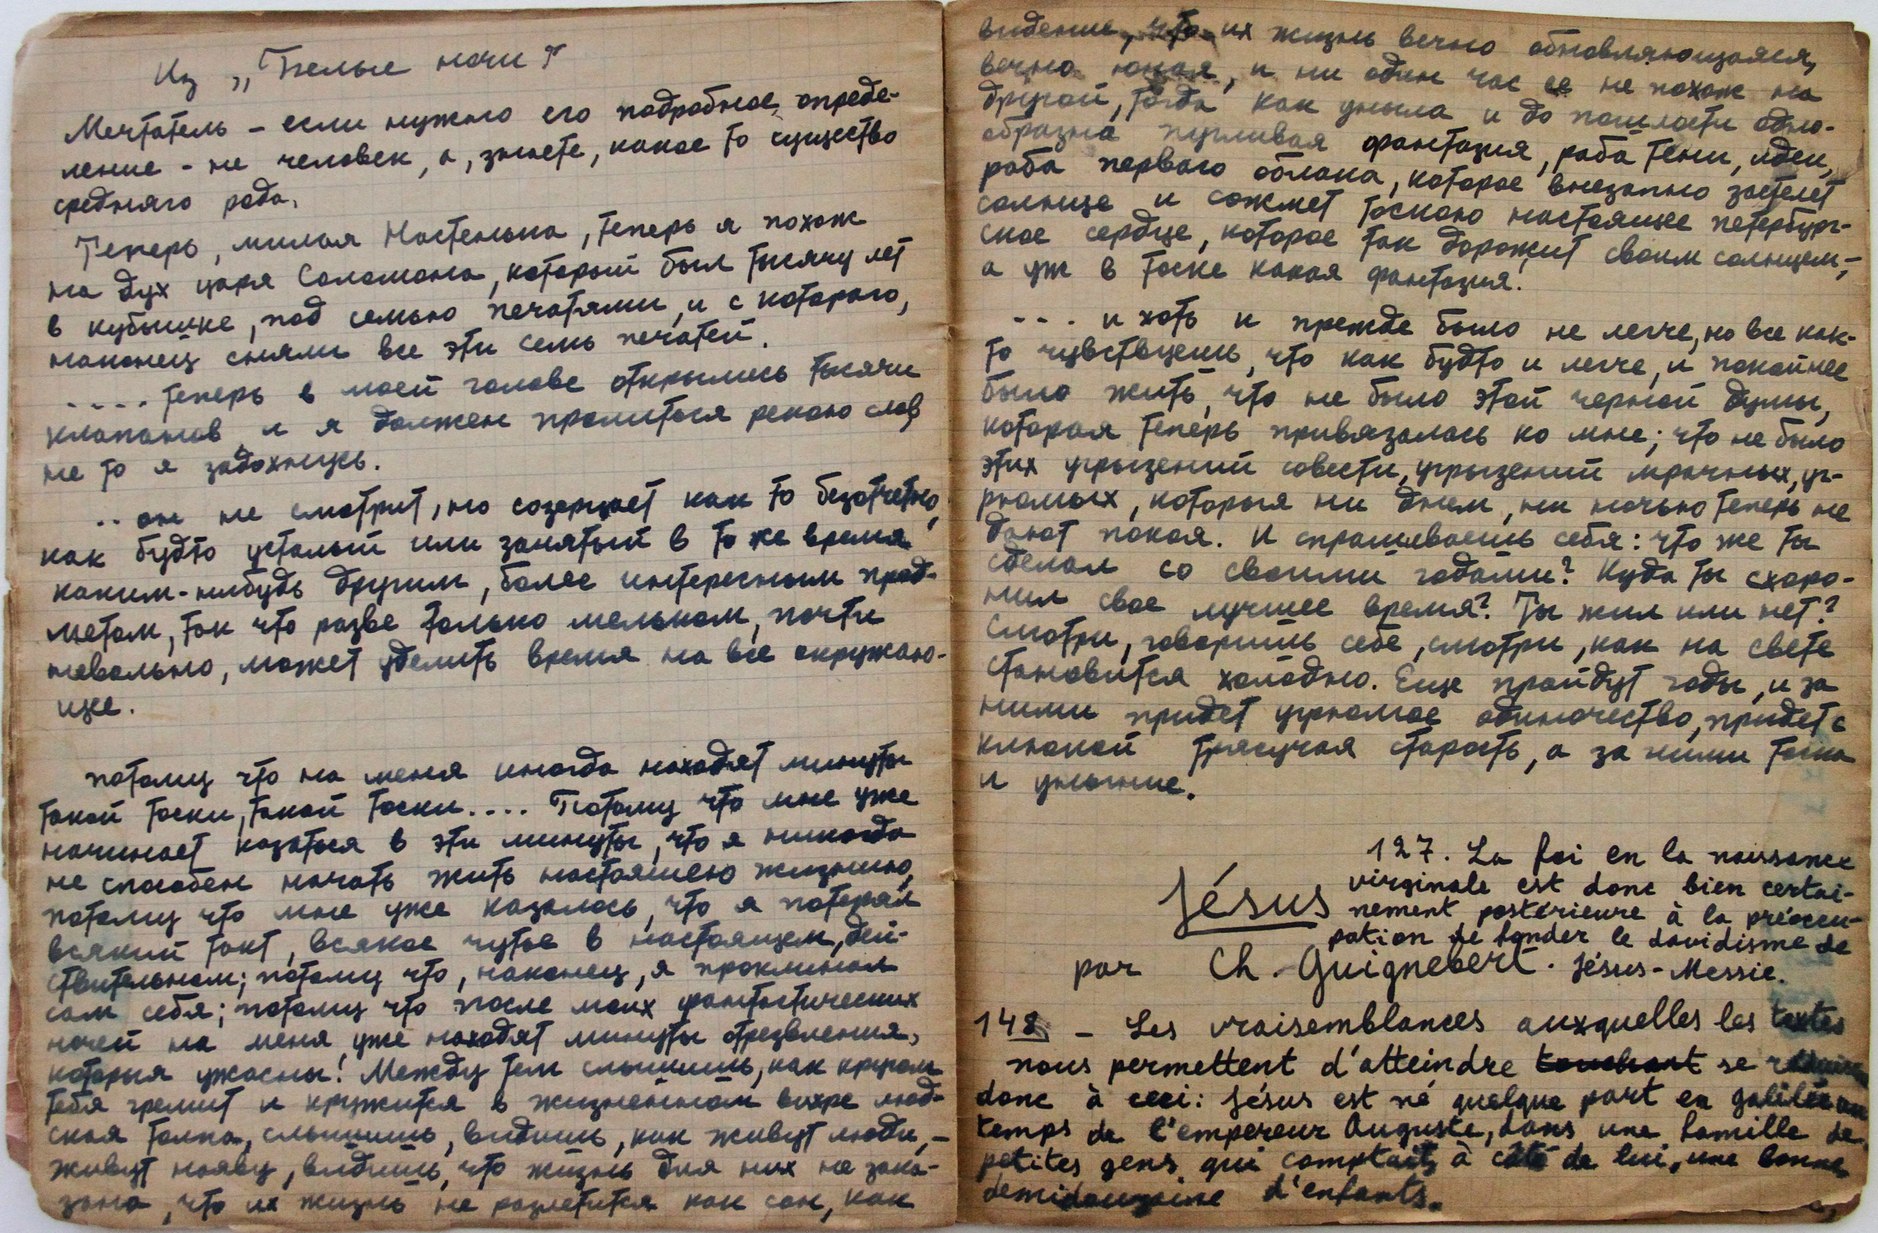 Из „Белые ночи"
Мечтатель – если нужно его подробное опреде-
ление – не человек, а, знаете, какое то существо
средняго рода.
Теперь, милая Настенька, теперь я похож
на дух царя Соломона, который был тысячу лет
в кубышке, под семью печатями, и с котораго,
наконец сняли все эти семь печатей.
.... теперь в моей голове открылись тысячи
клапанов и я должен пролиться рекою слов,
не то я задохнусь.
.. он не смотрит, но созерцает как то безотчетно,
как будто усталый или занятый в то же время
каким-нибудь другим, более интересным пред-
метом, так что разве только мельком, почти
невольно, может уделить время на все окружаю-
щее.
потому что на меня иногда находят минуты
такой тоски, такой тоски.... Потому что мне уже
начинает казаться в эти минуты, что я никогда
не способен начать жить настоящею жизнью,
потому что мне уже казалось, что я потерял
всякий такт, всякое чутье в настоящем, дей-
ствительном; потому что, наконец, я проклинал
сам себя; потому что после моих фантастических
ночей на меня уже находят минуты отрезвления,
которыя ужасны! Между тем слышишь, как кругом
тебя гремит и кружится в жизненном вихре люд-
ская толпа, слышишь, видишь, как живут люди, –
живут наяву, видишь, что жизнь для них не зака-
зана, что их жизнь не разлетится как сон, как
видение, что их жизнь вечно обновляющаяся,
вечно юная, и ни один час ее не похож на
другой, тогда как уныла и до пошлости одно-
образна пугливая фантазия, раба тени, идеи,
раба перваго облака, которое внезапно застелет
солнце и сожмет тоскою настоящее петербург-
ское сердце, которое так дорожит своим солнцем, –
а уж в тоске какая фантазия.
... и хоть и прежде было не легче, но все как-
то чувствуешь, что как будто и легче, и покойнее
было жить, что не было этой черной думы,
которая теперь привязалась ко мне; что не было
этих угрызений совести, угрызений мрачных, уг-
рюмых, которыя ни днем, ни ночью теперь не
дают покоя. И спрашиваешь себя: что же ты
сделал со своими годами? Куда ты схоро-
нил свое лучшее время? Ты жил или нет?
Смотри, говоришь себе, смотри, как на свете
становится холодно. Еще пройдут годы, и за
ними придет угрюмое одиночество, придет с
клюкой трясучая старость, а за ними тоска
и уныние.
127. La foi en la naissance
virginale est donc bien certai-
Jésus nement postérieure à la préoccu-
pation de fonder le davidisme de
par Ch. Guignebert. Jésus-Messie.
148 – Les vraisemblances auxquelles les textes
nous permettent d'atteindre touchant se
donc à ceci: Jésus est né quelque part en galilée au
temps de l'empereur Auguste, dans une famille de
petites gens qui comptait, à côté de lui, une bonne
demidouzaine d'enfants.